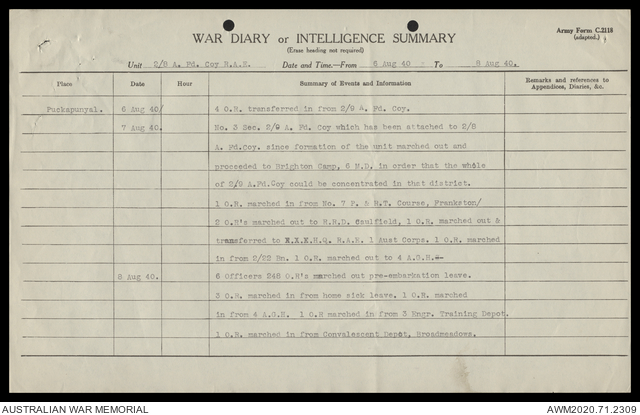 Army Form C.2118
(adapted.)
WAR DIARY or INTELLIGENCE SUMMARY
(Erase heading not required)
Unit 2/8 A. Fd. Coy R.A.E. Date and Time.—From 6 Aug 40 To 8 Aug 40.
Place Date Hour Summary of Events and Information Remarks and references to Appendices, Diaries, &c.
Puckapunyal. 6 Aug 40/ 4 O.R. transferred in from 2/9 A. Fd. Coy.
7 Aug 40. No. 3 Sec. 2/9 A. Fd. Coy which has been attached to 2/8
A. Fd.Coy. since formation of the unit marched out and
proceeded to Brighton Camp, 6 M.D. in order that the whole
of 2/9 A.Fd.Coy could be concentrated in that district.
1 O.R. marched in from No. 7 P. & R.T. Course, Frankston/
2 O.R's marched out to H.R.D. Caulfield, 1 O.R. marched out &
transferred to X.X.X H.Q. R.A.E. 1 Aust Corps. 1 O.R. marched
in from 2/22 Bn. 1 O.R. marched out to 4 A.G.H.
8 Aug 40. 6 Officers 248 O.R's marched out pre-embarkation leave.
3 O.R. marched in from home sick leave. 1 O.R. marched
in from 4 A.G.H. 1 O.R marched in from 3 Engr. Training Depot.
1 O.R. marched in from Convalescent Depot, Broadmeadows.
AUSTRALIAN WAR MEMORIAL
AWM2020.71.2309